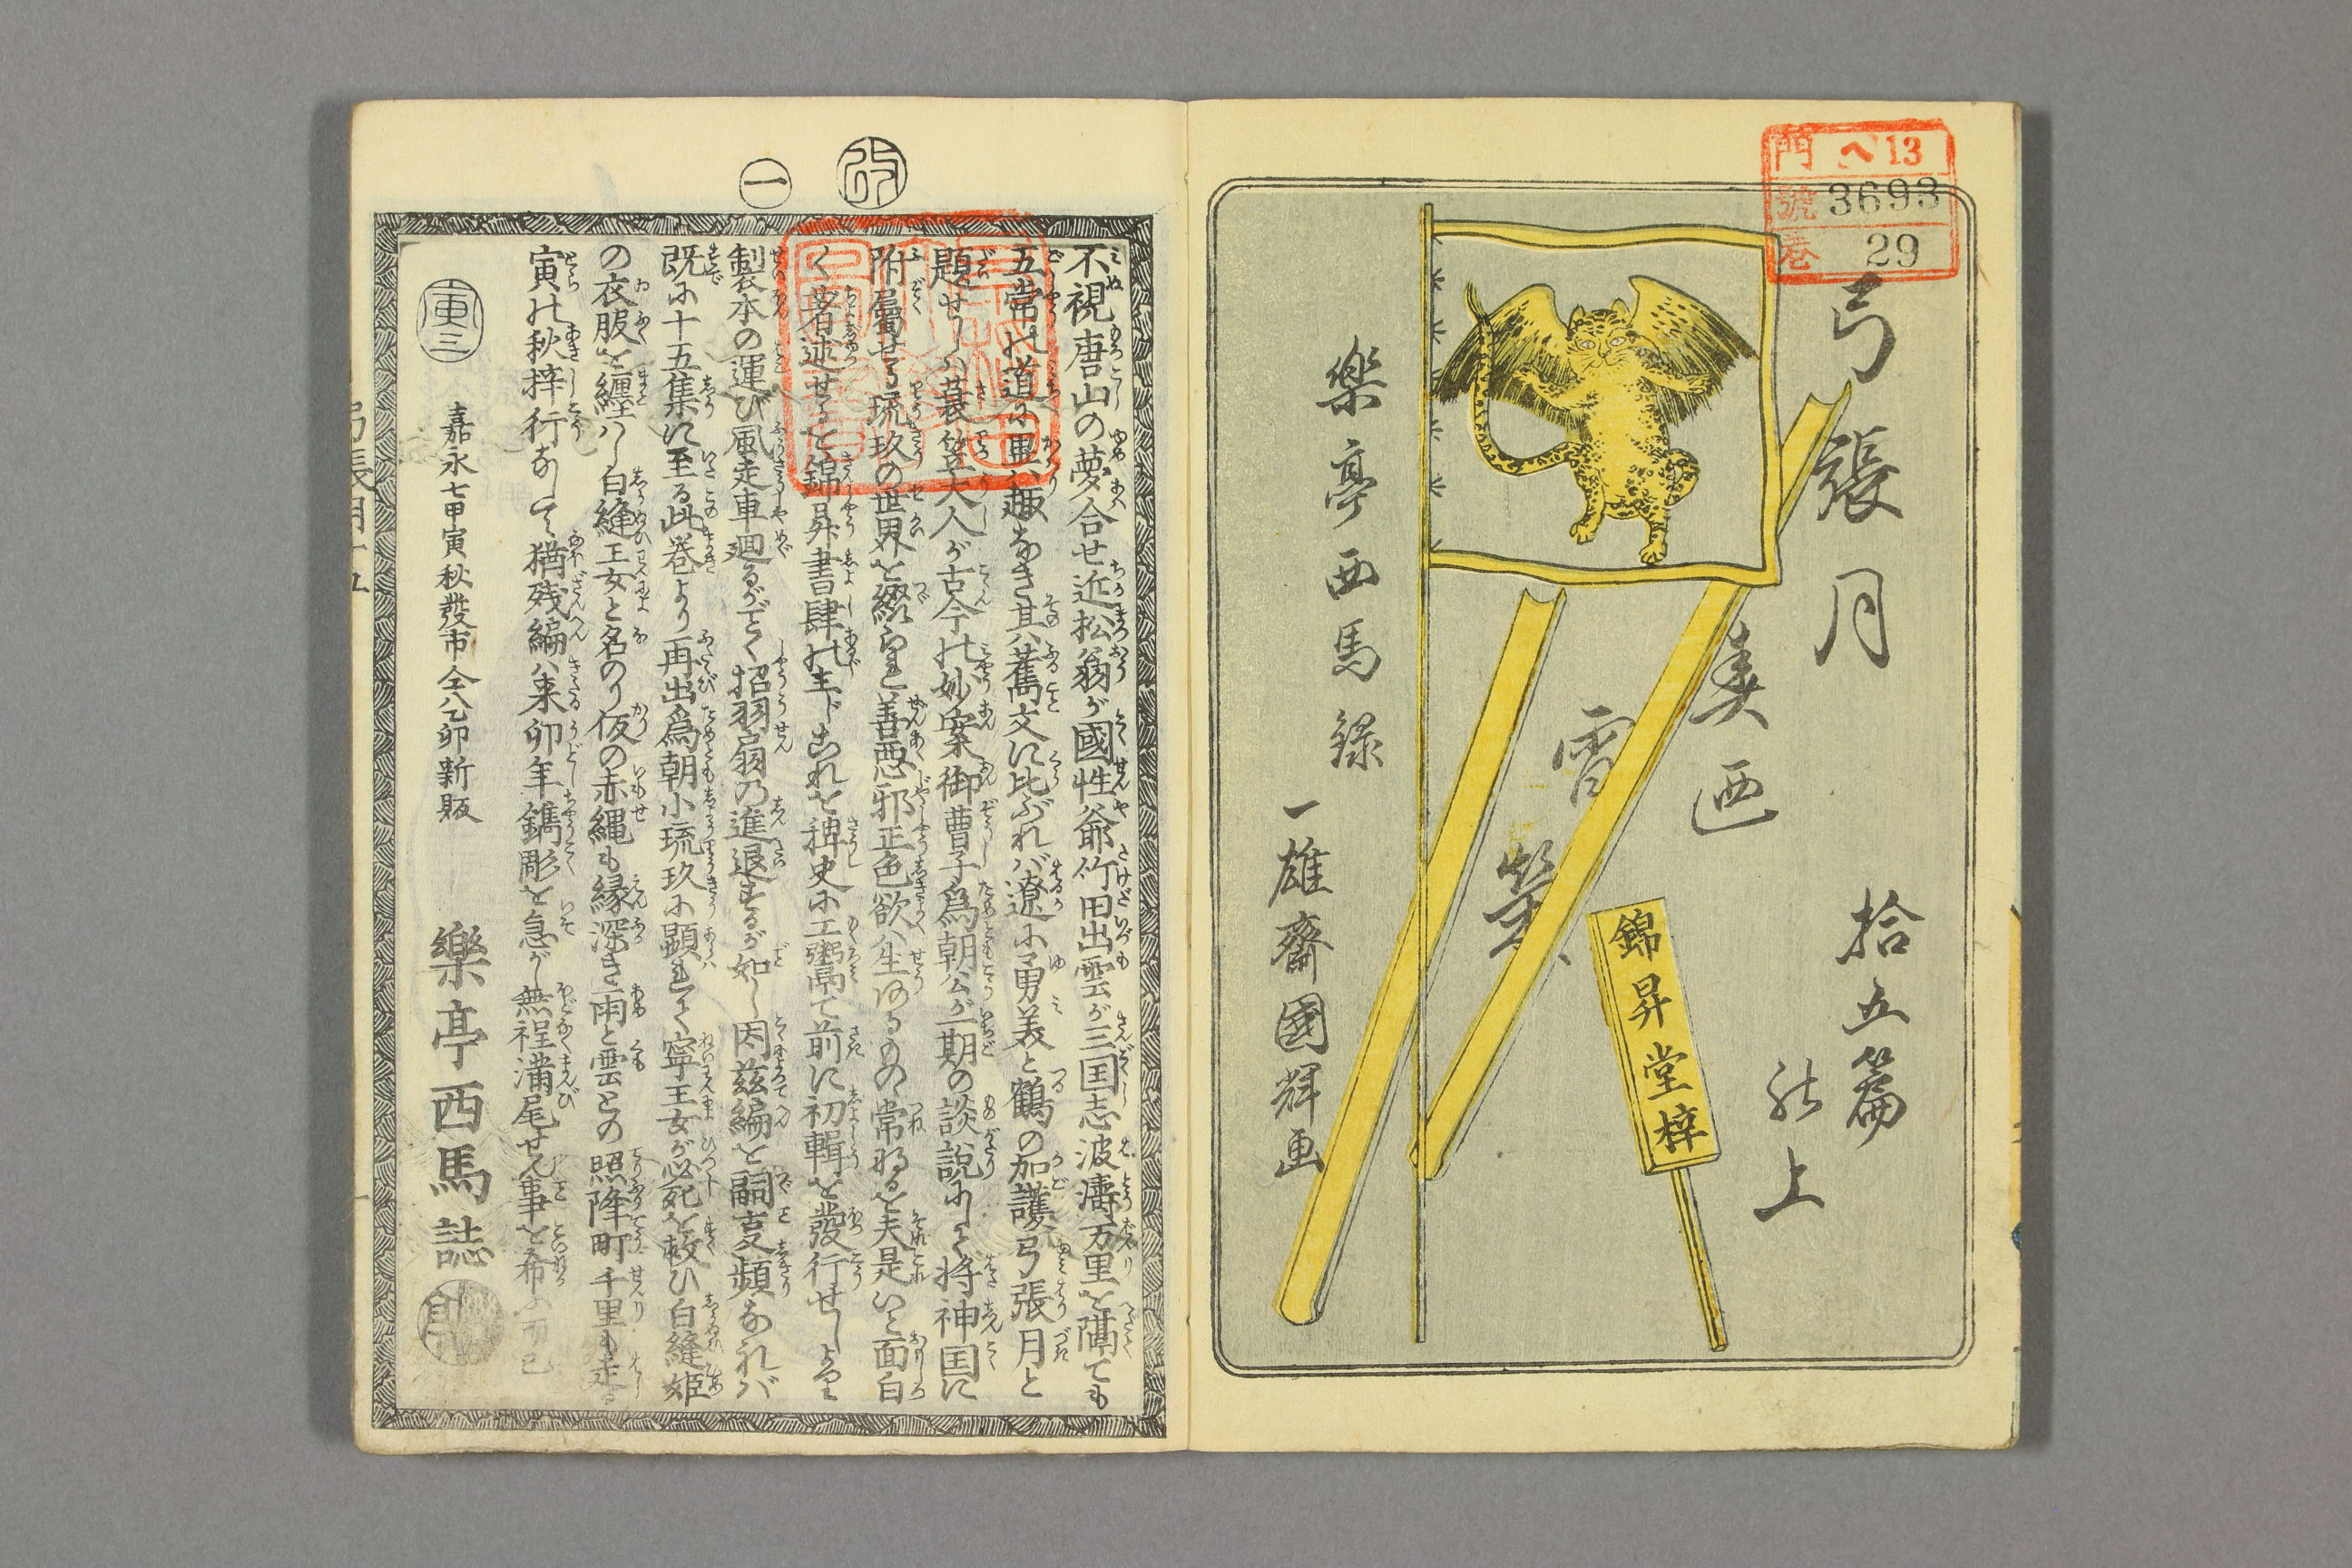 門 ヘ13
號 3693
巻 29
弓張月
拾五篇
の上
美画
雪
錦昇堂梓
樂亭西馬録
一雄齋國輝画
改
一
不視唐山の夢合せ近松翁が國性爺竹田出雲が三国志波濤万里を隔ても
五常の道に異趣なき其八舊文に比ぶれバ遼に勇美と鶴の加護弓張月と
題せしハ蓑笠大人が古今の妙案御曹子爲朝公が一期の談説にして将神国に
附屬せる琉玖の世界を綴られ善悪邪正色欲八生の常なるを夫是いと面白
く著述せるを錦昇書肆の主じこれを稗史に工鬻て前に初輯を發行せしより
製本の運び風走車廻るがごとく招羽扇乃進退するが如し因茲編を嗣支頻なれバ
既に十五集に至る此巻より再出爲朝小琉玖に顕れて寧王女が必死を救ひ白縫姫
の衣服を纏ハし白縫王女と名のり仮の赤縄も縁深き雨と雲との照降町千里も走る
寅の秋梓行なして猶残編ハ来卯年鐫彫を急がし無程満尾せん事を希ふ而已
嘉永七甲寅秋發市全八乙卯新版
樂亭西馬誌
寅三
弓張月十五
一